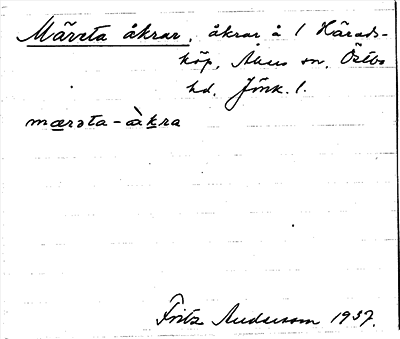 Märsta åkrar, åkrar å 1 Härads-
köp, Åkers sn, Östbo
hd, Jönk. l.
mærsta-åkra
Fritz Andersson 1937.